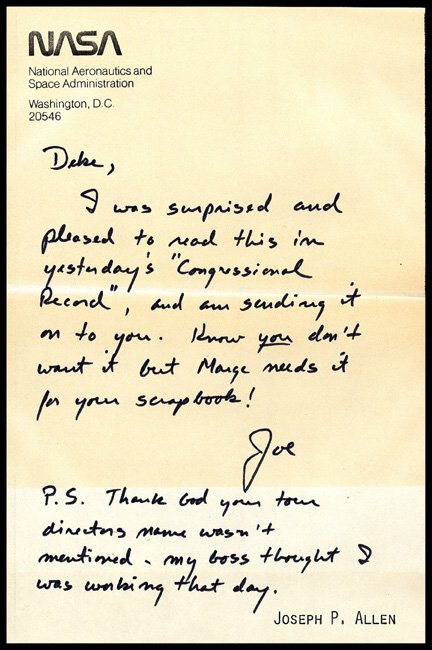 NASA
National Aeronautics and
Space Administration
Washington, D.C.
20546
Deke,
I was surprised and
pleased to read this in
yesterday's "Congressional
Record", and am sending it
on to you. Know you don't
want it but Marge needs it
for your scrapbook!
Joe
P.S. Thank God your tour
directors name wasn't
mentioned - my boss thought I
was working that day.
JOSEPH P. ALLEN